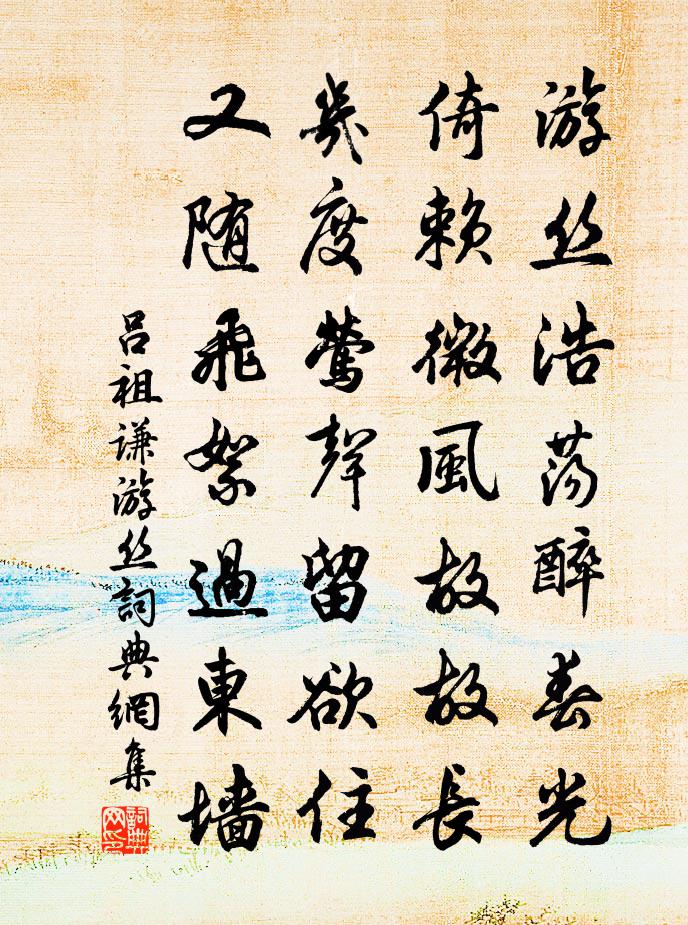 游丝浩荡醉春光
倚赖微風故故長
幾度鶯聲留欲住
又随飛絮過東墙
吕祖谦游丝詞典網集
詞典網印